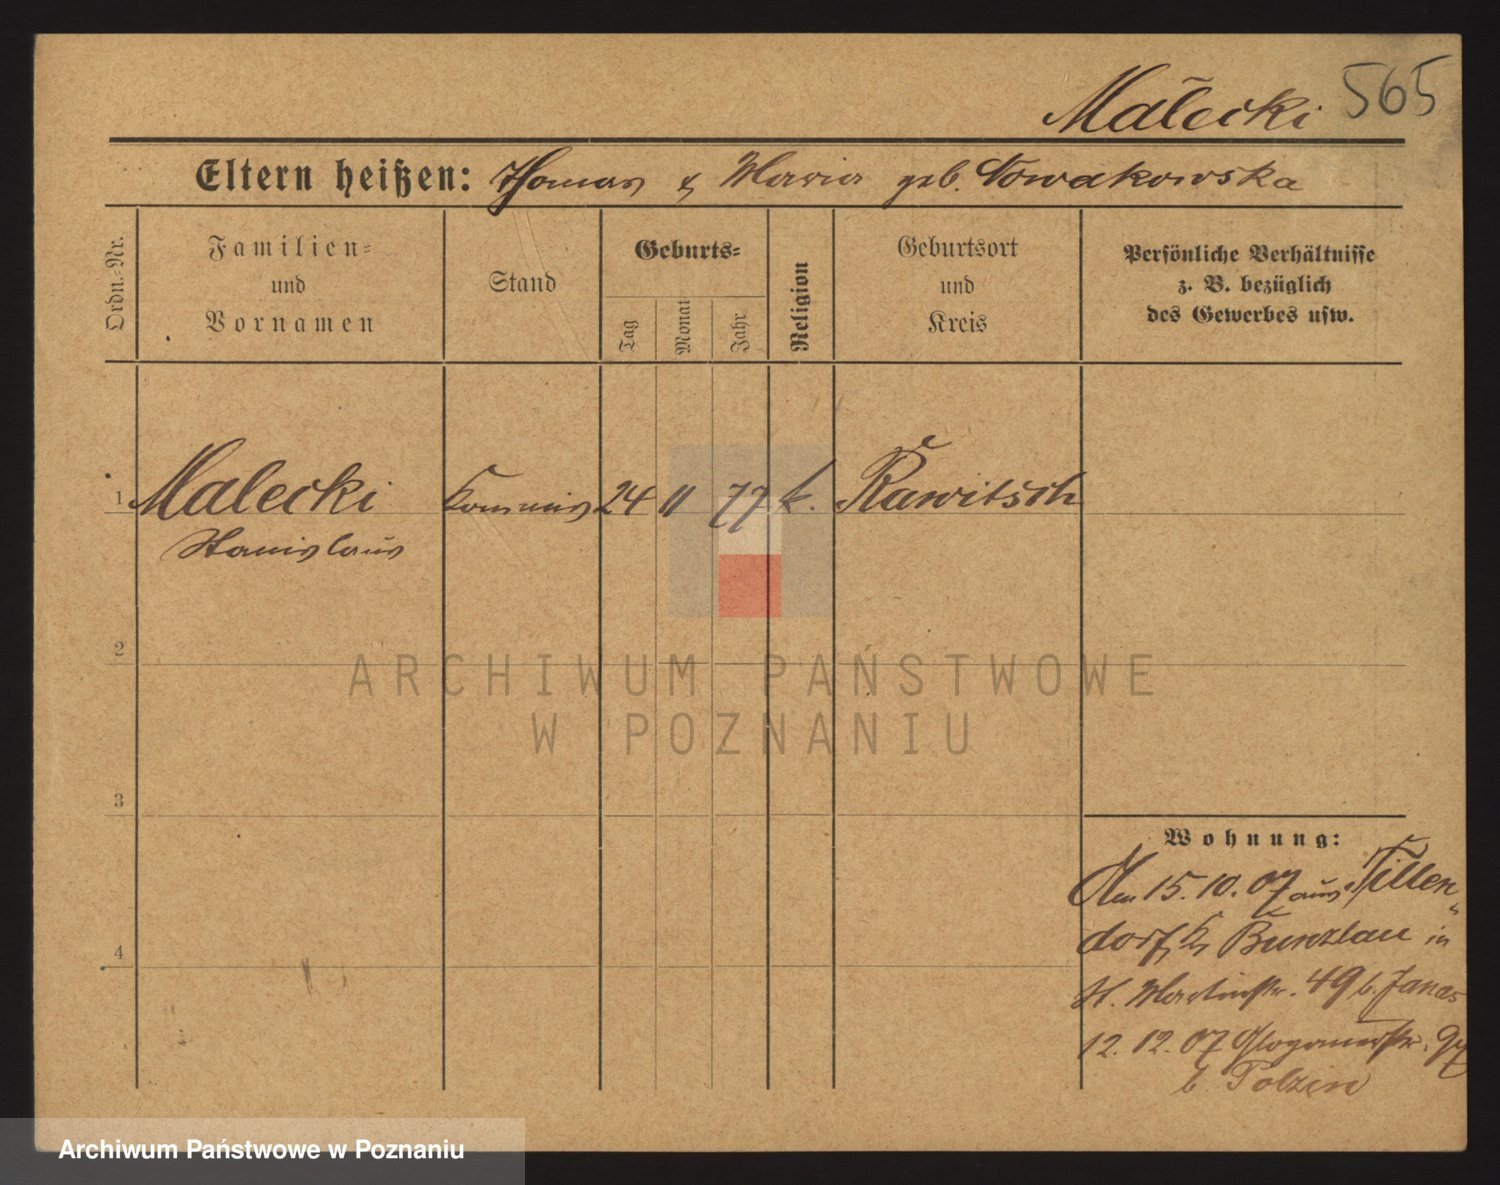 Malecki 565
Eltern heißen: Thomas & Maria geb. Nowakowska
Ordn.-Nr.
Familien-
und
Vornamen
Stand
Geburts-
Tag
Monat
Jahr
Religion
Geburtsort
und
Kreis
Persönliche Verhältnisse
z. B. bezüglich
des Gewerbes usw.
1 Malecki Kommis 24 11 77 k. Rawitsch
Stanislaus
2
3
4
Wohnung:
Am 15.10.07 aus Tillen-
dorf, Kr. Bunzlau in
St. Martinstr. 49 b. Janas
12.12.07 Glogauerstr.
b. Tolzin
ARCHIWUM PAŃSTWOWE
W POZNANIU
Archiwum Państwowe w Poznaniu